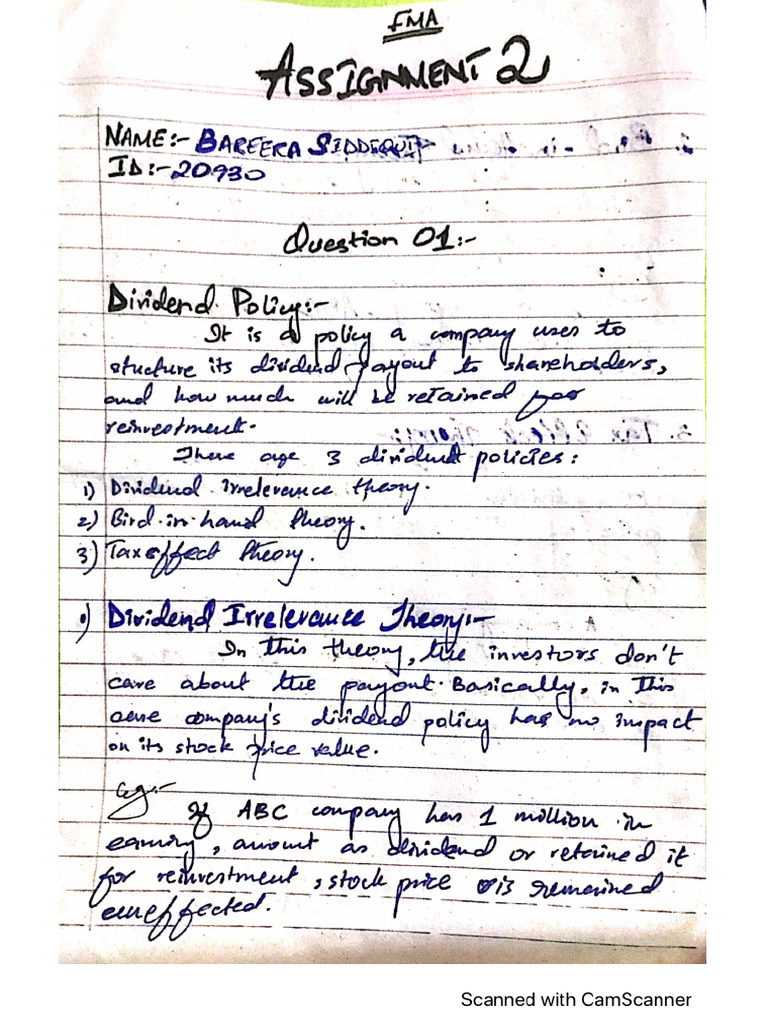 FMA
ASSIGNMENT 2
NAME:- BAREERA SIDDIQUI
ID:- 20930
Question 01:-
Dividend Policy:-
It is a policy a company uses to
stucture its dividend payout to shareholders,
and how much will be retained for
reinvestment.
There are 3 dividend policies:
1) Dividend irrelevance theory.
2) Bird-in-hand theory.
3) Tax effect theory.
1) Dividend Irrelevance Theory:-
In this theory, the investors don't
care about the payout. Basically, in this
company's dividend policy has no impact
on its stock price value.
eg:-
If ABC company has 1 million in
earning, amount as dividend or retained it
for reinvestment, stock price is remained
uneffected.
Scanned with CamScanner